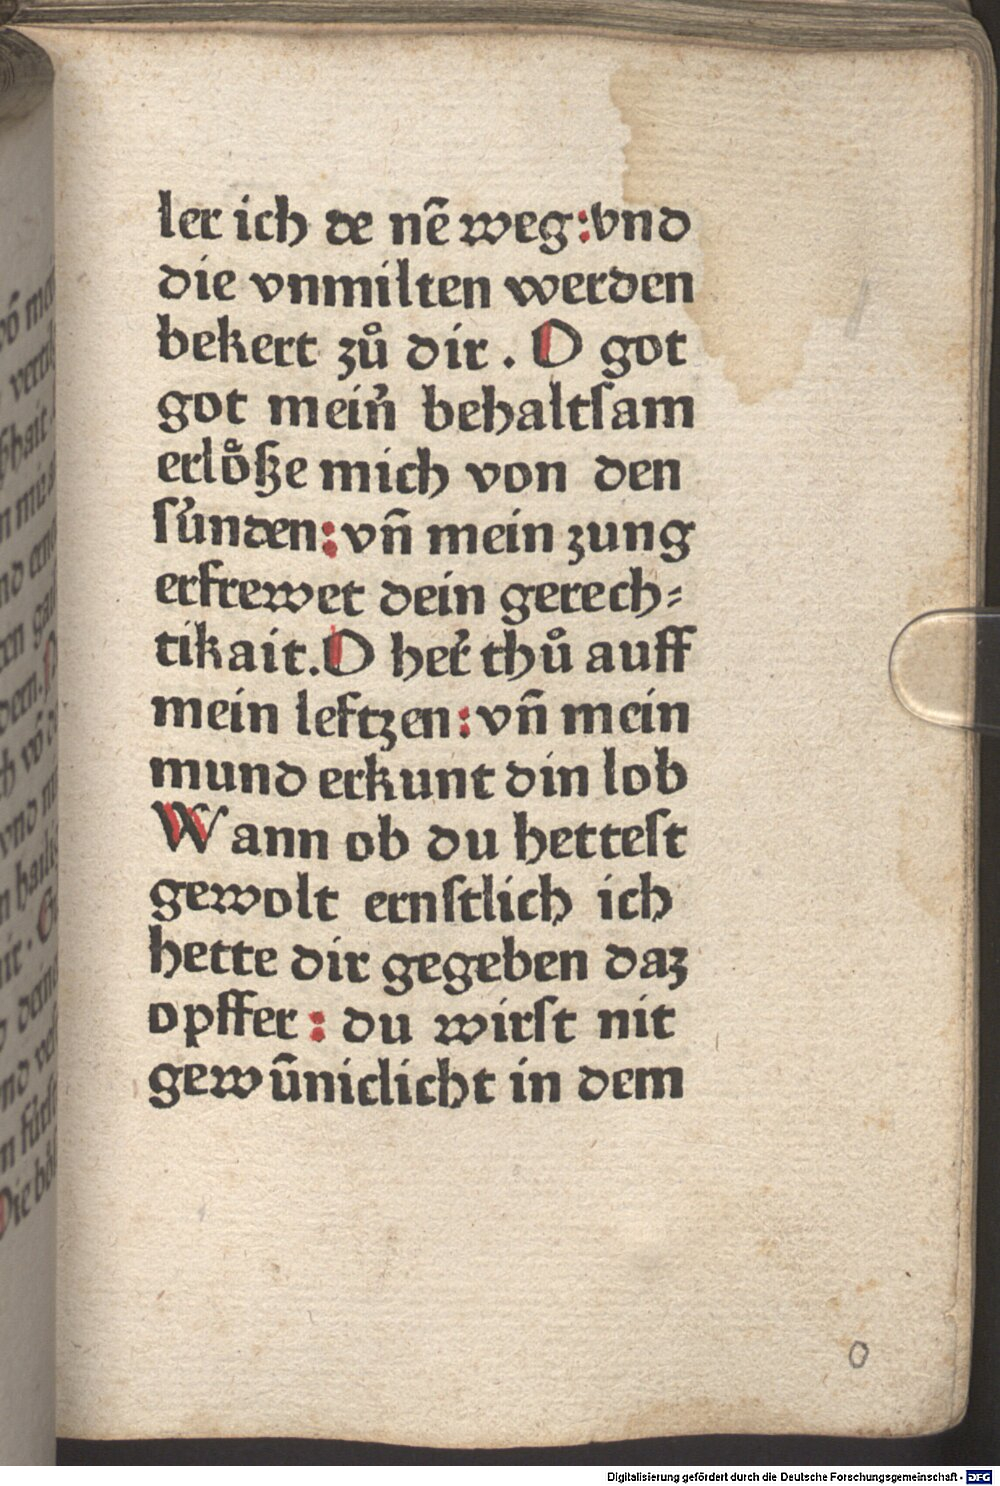 ler ich de nē weg:vnd
die vnmilten werden
bekert zů dir . O got
got mein̄ behaltſam
erlo̊ſʒe mich von den
ſu̇nden:vn̄ mein zung
erfrewet dein gerech⸗
tikait.O her̄ thů auff
mein leftzen:vn̄ mein
mund erkunt din lob
Wann ob du hetteſt
gewolt ernſtlich ich
hette dir gegeben daz
opffer : du wirſt nit
gewūniclicht in dem
0
Digitalisierung gefördert durch die Deutsche Forschungsgemeinschaft - DFG